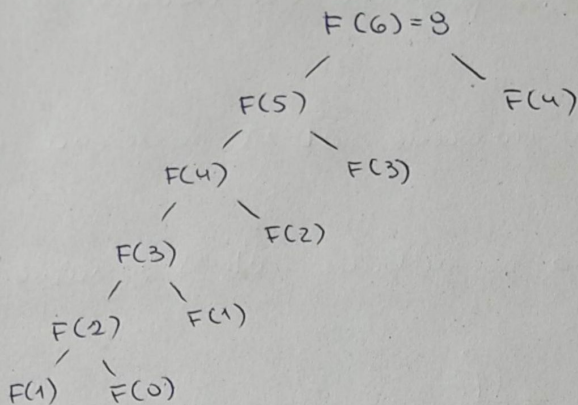 F(6)=9
F(5) F(4)
F(4) F(3)
F(3) F(2)
F(2) F(1)
F(1) F(0)